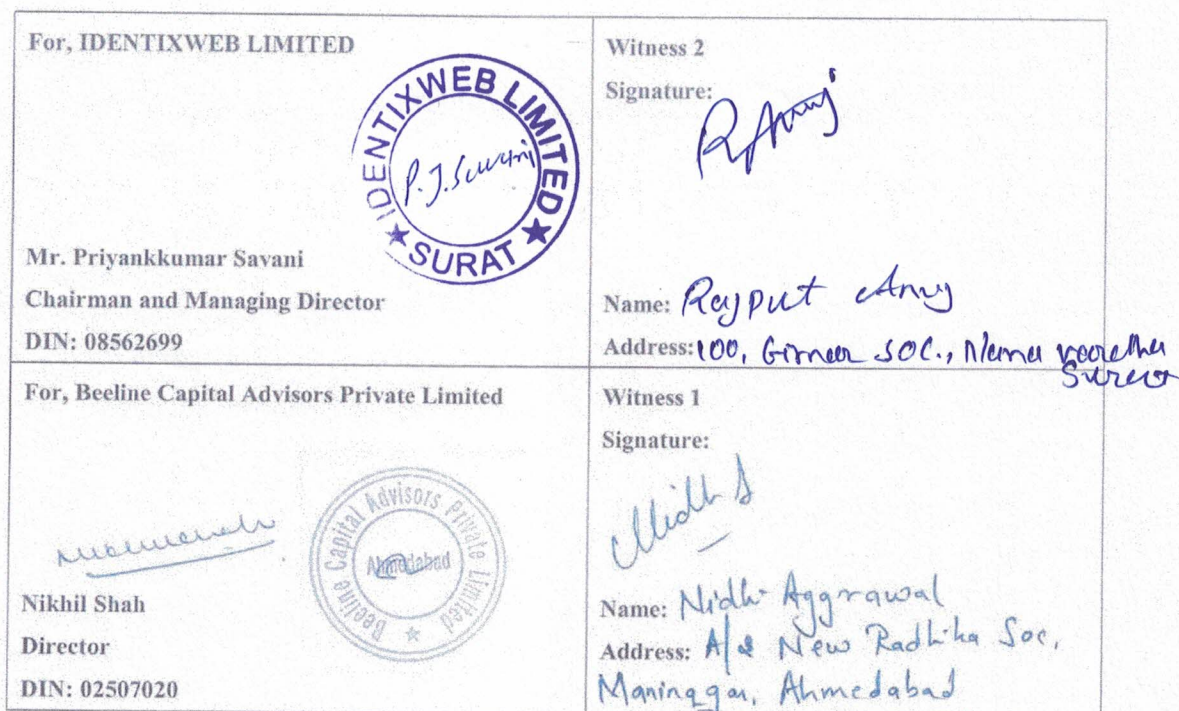 For, IDENTIXWEB LIMITED
IDENTIXWEB LIMITED
P. J. Savani
★ SURAT ★
Mr. Priyankkumar Savani
Chairman and Managing Director
DIN: 08562699
Witness 2
Signature:
R Anuj
Name: Rajput Anuj
Address: 100, Girnar SOC., Nana
For, Beeline Capital Advisors Private Limited
Beeline Capital Advisors Private Limited
Ahmedabad
★
Nikhil Shah
Director
DIN: 02507020
Witness 1
Signature:
Nidhi A
Name: Nidhi Aggrawal
Address: New Radhika Soc,
Maninagar, Ahmedabad